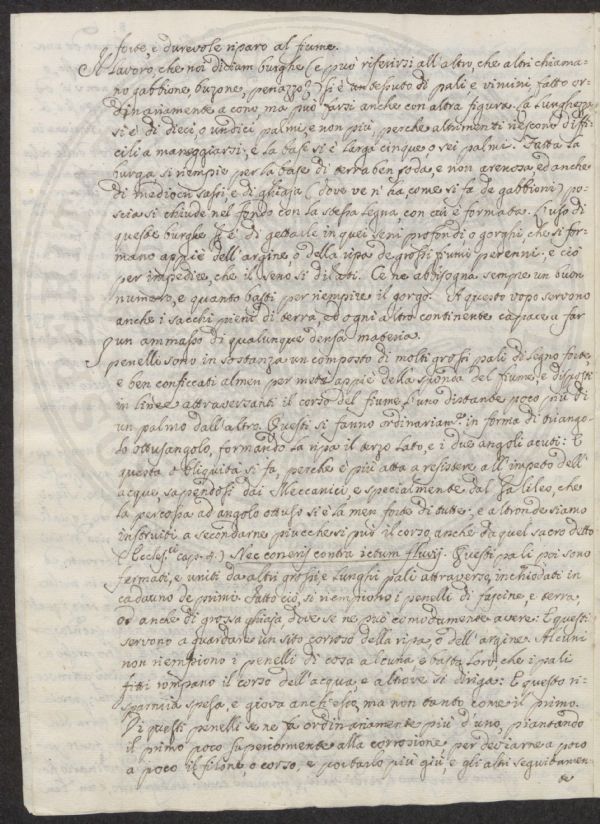 forte, e durevole riparo al fiume.
Il Lavoro, che noi diciam burghe (e può riferirsi all'altro, che altri chiama-
no gabbione, buzone, penazzo) si è un tessuto di pali e vimini, fatto or-
dinariamente a cono, ma può farsi anche con altra figura. La lunghezza
si è di dieci, o undici palmi, e non più, perche altrimenti riescono diffi-
cili a maneggiarsi, e la base si è larga cinque, o sei palmi. Tutta la
burga si riempie per la base di terra ben soda, e non arenosa, ed anche
di mediocri sassi, e di ghiaja (dove ve n'ha, come si fa de gabbioni) po-
scia si chiude nel fondo con la stessa legna, con cui è formata. L'uso di
queste burghe si è di gettarle in quei seni profondi, o gorghi, che si for-
mano appiè dell'argine, o della ripa de grossi fiumi perenni, e ciò
per impedire, che il seno si dilati. Ce ne abbisogna sempre un buon
numero, e quanto basti per riempire il gorgo. A questo uopo servono
anche i sacchi pieni di terra, ed ogni altro continente capace a far
un ammasso di qualunque densa materia.
I penelli sono in sostanza un composto di molti grossi pali di legno forte,
e ben conficcati almen per metà appiè della sponda del fiume, e disposti
in linee attraversanti il corso del fiume l'uno distante poco più di
un palmo dall'altro. Questi si fanno ordinariam.e in forma di triango-
lo ottusangolo, formando la ripa il terzo lato, e i due angoli acuti: E
questa obliquità si fa, perche è più atta a resistere all'impeto dell'
acque, sapendosi dai Meccanici, e specialmente dal Galileo, che
la percossa ad angolo ottuso si è la men forte di tutte: e altronde siamo
instruiti a secondarne piucche si può il corso anche da quel sacro detto
(Eccles.ci cap. 4.) Nec coneris contra ictum fluvij. Questi pali poi sono
fermati, e uniti da altri grossi, e lunghi pali attraverso, inchiodati in
cadauno de primi. Fatto ciò, si riempiono i penelli di fascine, e terra,
od anche di grossa ghiaja, dove se ne può comodamente avere: E questi
servono a guardare un sito corroso della ripa, o dell'argine. Alcuni
non riempiono i penelli di cosa alcuna, e basta loro, che i pali
fitti rompano il corso dell'acqua, e altrove si diriga: E questo ri-
sparmia spesa, e giova anch'esso, ma non tanto come il primo.
Di questi penelli se ne fa ordinariamente più d'uno, piantando
il primo poco superiormente alla corrosione per deviarne a poco
a poco il filone, o corso, e portarlo più giù, e gli altri seguitamen-
te